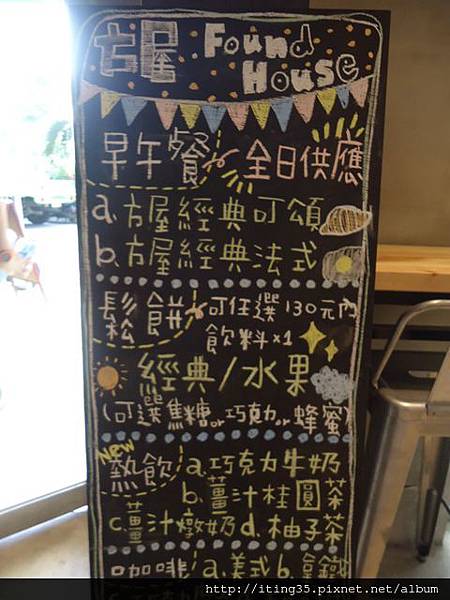 方屋 Found House
早午餐 全日供應
a. 方屋經典可頌
b. 方屋經典法式
鬆餅 可任選130元內
飲料x1
經典/水果
(可選焦糖or巧克力or蜂蜜)
New
熱飲 a.巧克力牛奶
b.薑汁桂圓茶
c.薑汁燉奶 d.柚子茶
咖啡 a.美式 b.拿鐵
http://iting35.pixnet.net/album